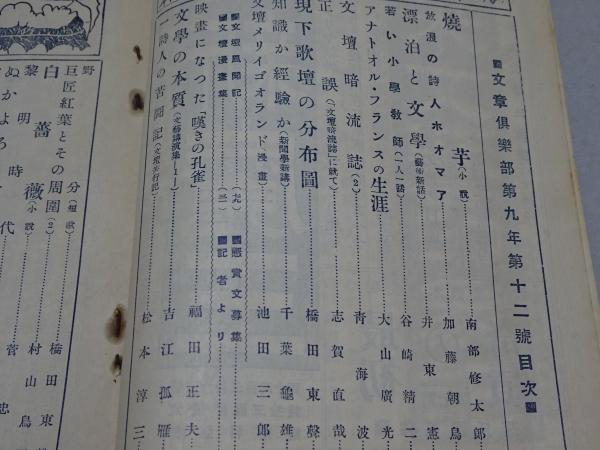 文章俱樂部第九年第十二號目次
燒芋(小說)……南部修太郎
放浪の詩人ホオマア……加藤朝鳥
漂泊と文學(藝術新話)……井東憲
若い小學教師(一人一話)……谷崎精二
アナトオル・フランスの生涯……大山廣光
文壇暗流誌(2)……青海波
正誤(「文壇暗流誌」に就て)……志賀直哉
現下歌壇の分布圖……橋田東聲
知識か經驗か(新聞學新講)……千葉龜雄
文壇メリイゴオランド(漫畫)……池田三郎
文壇風聞記……(一九)
懸賞文募集
文壇漫畫集……(三一)
記者より
映畫になつた「嘆きの孔雀」……福田正夫
文學の本質(文藝講演集—1—)……吉江孤雁
一詩人の苦鬪記(文壇苦行記)……松本淳三
野分(短歌)……
巨匠紅葉とその周圍(2)……橋田東
白薔薇(小說)……村山鳥
黎明時代……菅忠
ぬかよろ